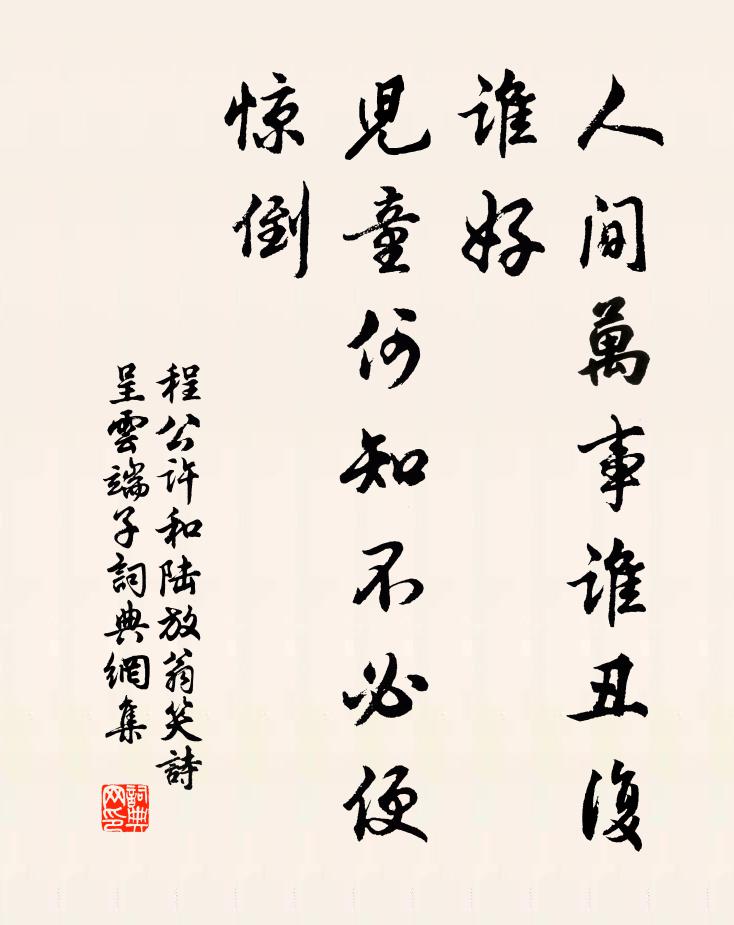 人间萬事誰丑復
誰好
兒童何知不必便
惊倒
程公許和陆放翁笑詩
呈雲端子詞典網集
詞典网印